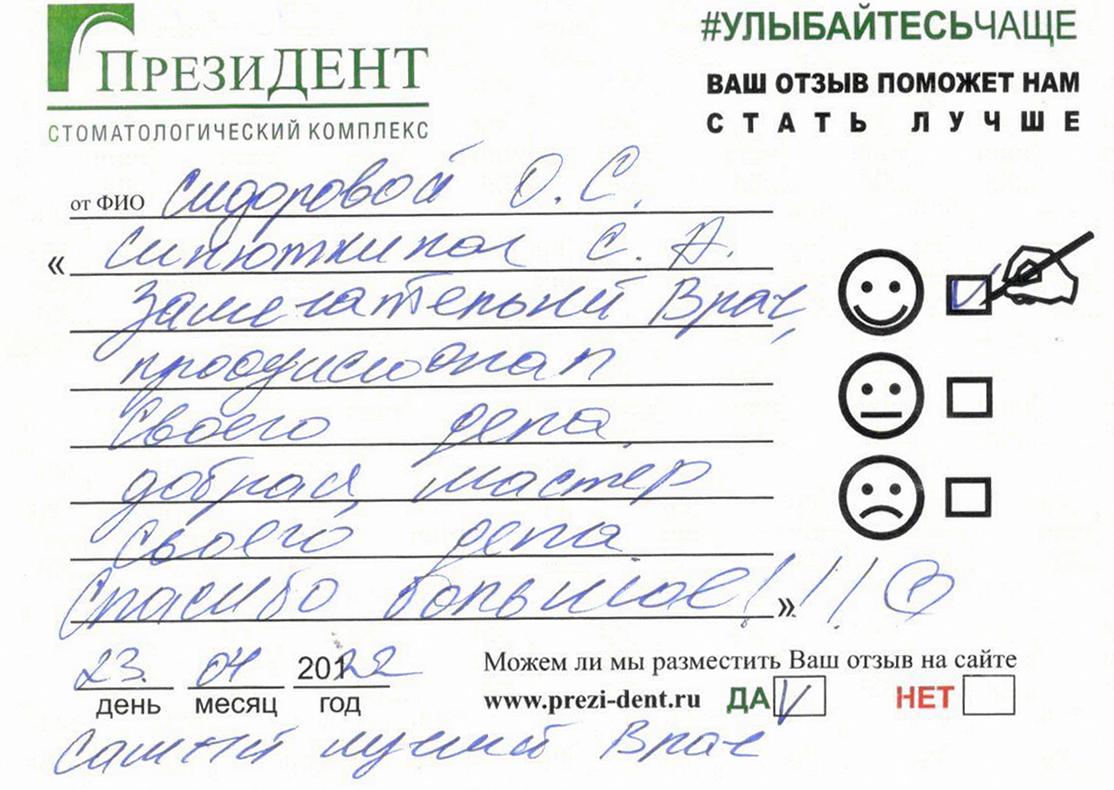 ПРЕЗИДЕНТ
СТОМАТОЛОГИЧЕСКИЙ КОМПЛЕКС
#УЛЫБАЙТЕСЬЧАЩЕ
ВАШ ОТЗЫВ ПОМОЖЕТ НАМ
СТАТЬ ЛУЧШЕ
от ФИО Сидоровой О. С.
« Синюткиной С. А.
Замечательний Врач,
профисионал
своего дела
добрая, мастер
своего дела
Спасибо большое! » !!
23. 04 2022
день месяц год
Можем ли мы разместить Ваш отзыв на сайте
www.prezi-dent.ru ДА V НЕТ
самый лучший Врач